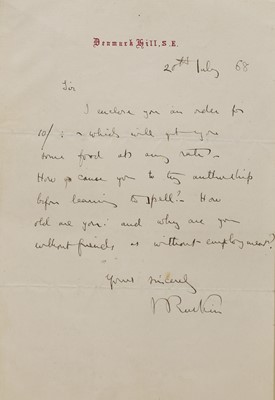 Denmark Hill, S.E.
20th July 68
Sir
I enclose you an order for
10/ : - which will get you
some food at any rate -
How came you to try authorship
before learning to spell? - How
old are you: and why are you
without friends or without employment?
Yours sincerely
J Ruskin